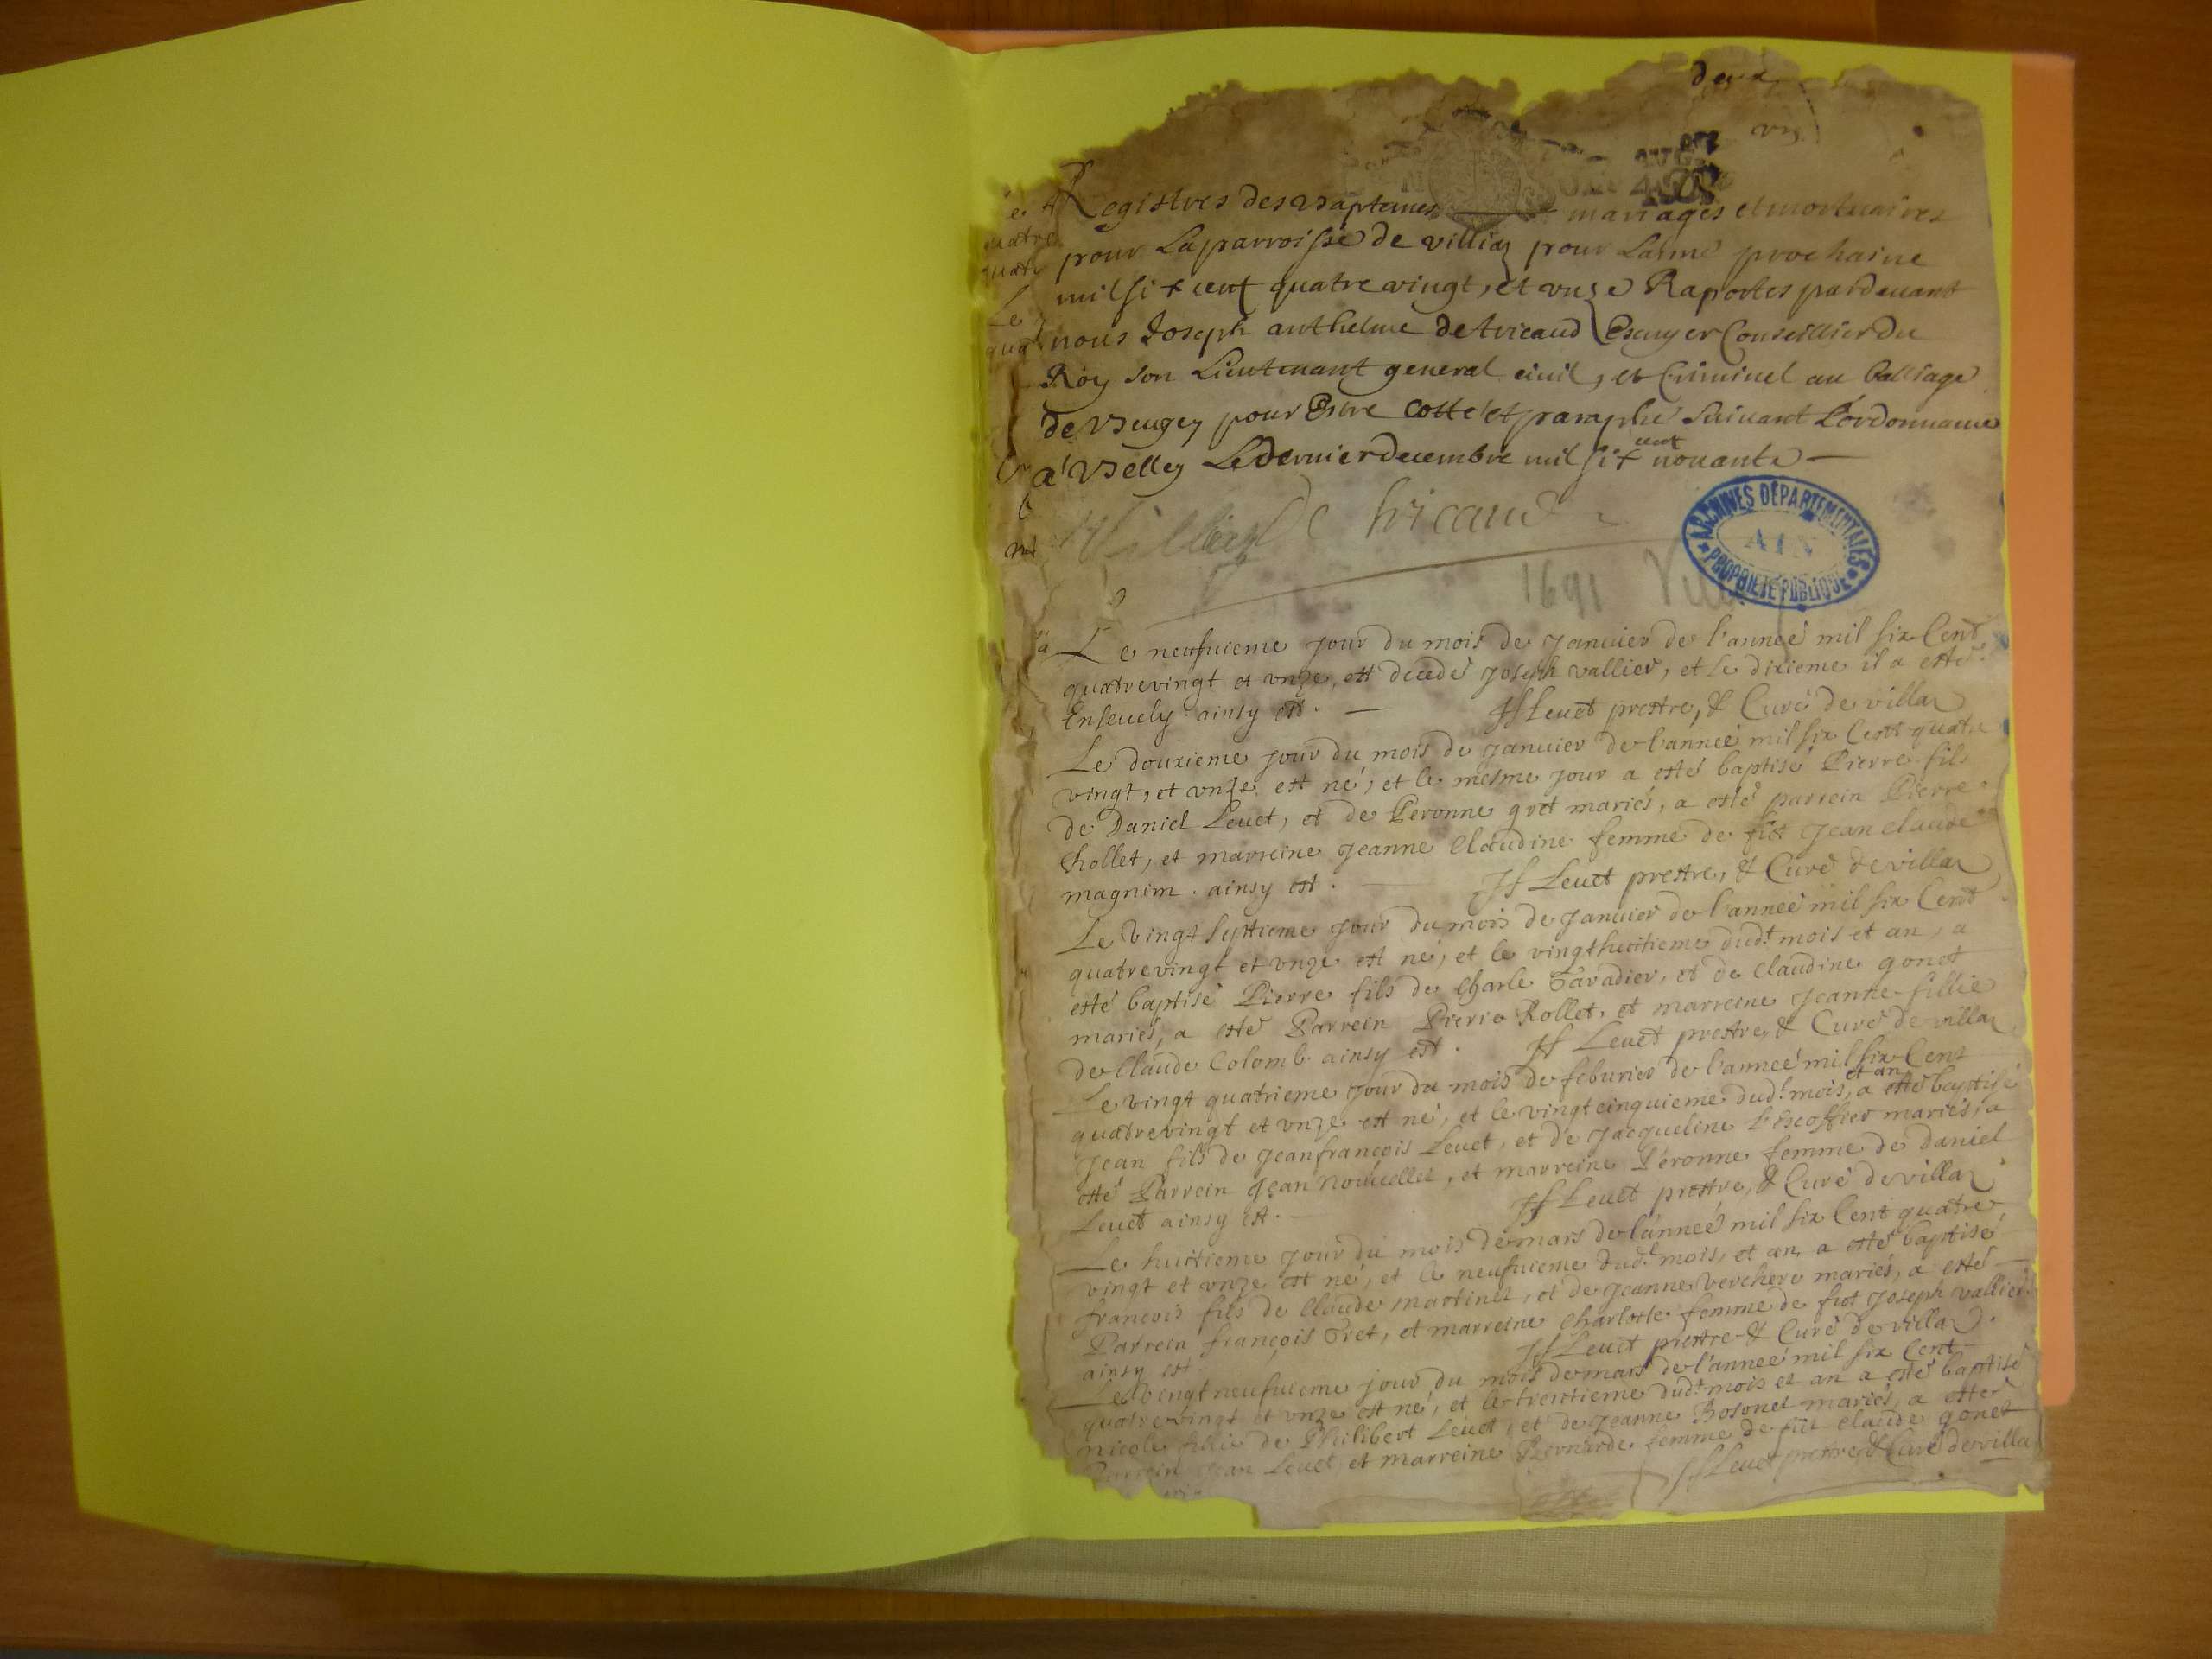 deux
Registres des Baptemes mariages et mortuaires
pour La parroisse de villia pour Lanné prochaine
mil six cent quatre vingt, et unze Raportes pardeuant
nous Joseph anthelme de tricaud Escuyer Conseillier Du
Roy son Lieutenant general ciuil, et Criminel au Balliage
de Beugey pour Estre cotté et paraphé suiuant L'ordonnance
a Belley Le Dernier decembre mil six cent nonante
De tricaud
ARCHIVES DÉPARTEMENTALES
AIN
PROPRIÉTÉ PUBLIQUE
1691
Le neufuieme jour du mois de januier de l'anneé mil six Cent
quatrevingt et unze, est decedé joseph vallier, et le dixieme il a esté
Enseuely ainsy est. Jf Leuet prestre, & Curé de villa
Le douxieme jour du mois de januier de l'anneé mil six Cent quatre
vingt, et unze est né, et le mesme jour a esté baptisé Pierre fils
de Daniel Leuet, et de Peronne gret mariés, a esté parrein Pierre
Chollet, et marreine jeanne Claudine femme de fut jean claude
magnim. ainsy est. Jf Leuet prestre, & Curé de villa
Le vingt septieme jour du mois de januier de l'anneé mil six Cent
quatrevingt et unze est né, et le vingthuitieme dudt mois et an, a
esté baptisé Pierre fils de Charle Tavadier, et de Claudine gonet
mariés, a esté Parrein Pierre Rollet, et marreine jeanne fillie
de Claude Colomb. ainsy est. Jf Leuet prestre & Curé de villa
Le vingt quatrieme jour du mois de feburier de l'anneé mil six Cent
quatrevingt et unze est né, et le vingtcinquieme dudt mois, et an a esté baptisé
jean fils de jeanfrançois Leuet, et de jacqueline l'Escoffier mariés, a
esté Parrein jean nouuellet, et marreine Péronne femme de Daniel
Leuet ainsy est. Jf Leuet prestre, & Curé de villa
Le huitieme jour du mois de mars de l'anneé mil six Cent quatre
vingt et unze est né, et le neufuieme dudt mois, et an, a esté baptisé
françois fils de Claude martinet, et de jeanne verchere mariés, a esté
Parrein françois Gret, et marreine Charlotte femme de fut joseph vallier
ainsy est. Jf Leuet prestre & Curé de villa.
Le vingtneufuieme jour du mois de mars de l'anneé mil six Cent
quatrevingt et unze est né, et le trentieme dudt mois et an a esté baptisé
nicole fillie de Philibert Leuet, et de jeanne Bosonet mariés, a esté
Parrein jean Leuet et marreine Bernarde femme de fut claude gonet
Jf Leuet prestre & Curé de villa